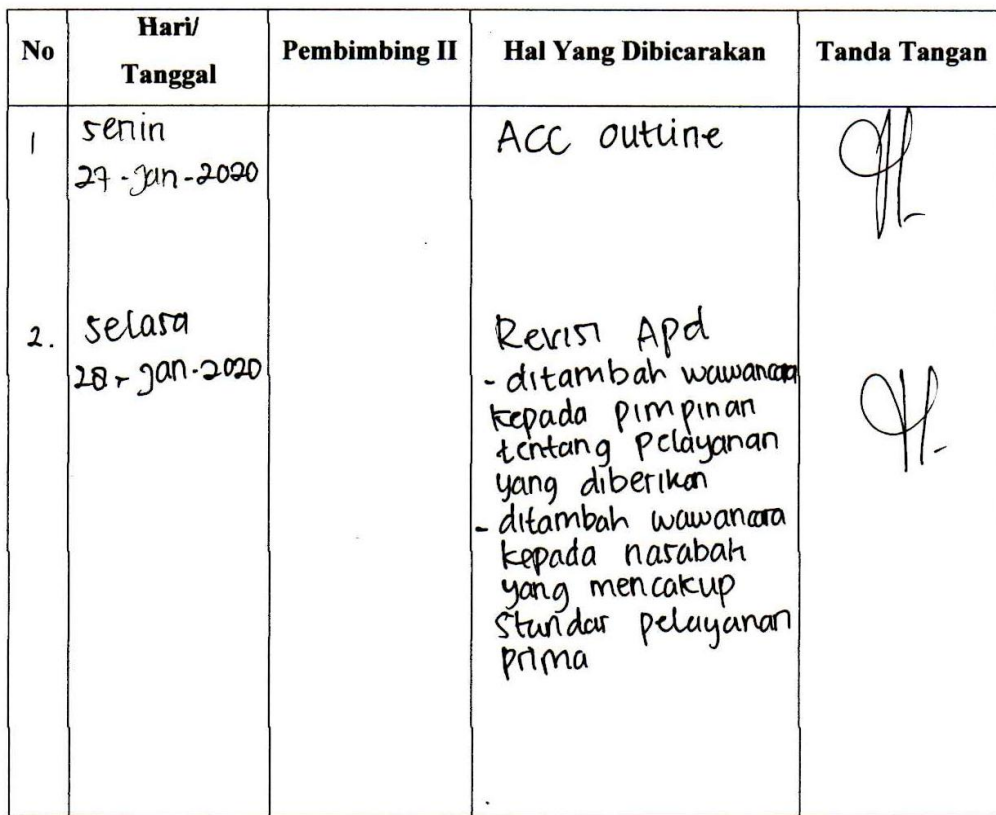 No Hari/ Tanggal Pembimbing II Hal Yang Dibicarakan Tanda Tangan
1 senin ACC outline
27-Jan-2020
2. selasa Revisi Apd
28-Jan-2020 - ditambah wawancara
kepada pimpinan
tentang pelayanan
yang diberikan
- ditambah wawancara
kepada nasabah
yang mencakup
standar pelayanan
prima